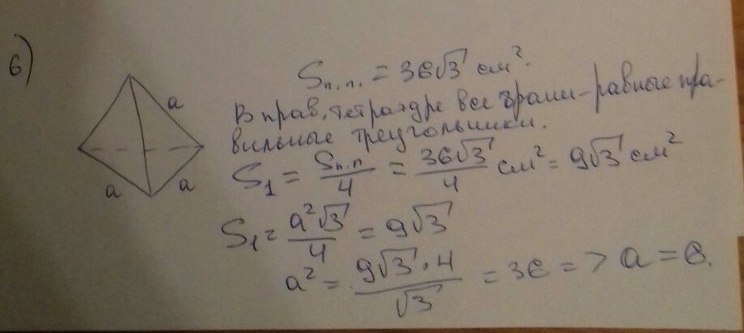 6)
Sп.п. = 36√3 см².
a
В прав. тетраэдре все грани – равные пра-
вильные треугольники.
a a
S₁ = Sп.п/4 = 36√3/4 см² = 9√3 см²
S₁ = a²√3/4 = 9√3
a² = 9√3·4/√3 = 36 => a = 6.